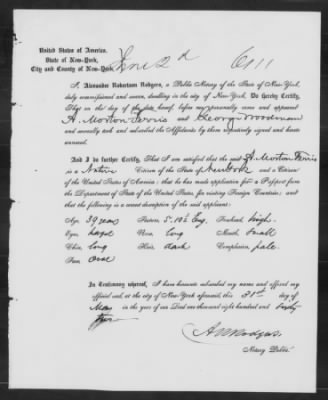 United States of America.
State of New-York,
City and County of New-York.
June 2d 6111
I, Alexander Robertson Rodgers, a Public Notary of the State of New-York,
duly commissioned and sworn, dwelling in the city of New-York, Do hereby Certify,
That on this day of the date hereof, before me personally came and appeared
H. Morton Ferris and George Woodman
and severally took and subscribed the Affidavits by them respectively signed and hereto
annexed.
And I do further Certify, That I am satisfied that the said H. Morton Ferris
is a Native Citizen of the State of New York and a Citizen
of the United States of America; that he has made application for a Passport from
the Department of State of the United States for visiting Foreign Countries; and that
the following is a correct description of the said applicant:
Age, 39 years Stature, 5. 10½ Eng. Forehead, high
Eyes, hazel Nose, long Mouth, small
Chin, long Hair, dark Complexion, pale
Face, Oval
In Testimony whereof, I have hereunto subscribed my name and affixed my
official seal, at the city of New-York aforesaid, this 31st day of
May in the year of our Lord one thousand eight hundred and sixty
A R Rodgers
Notary Public